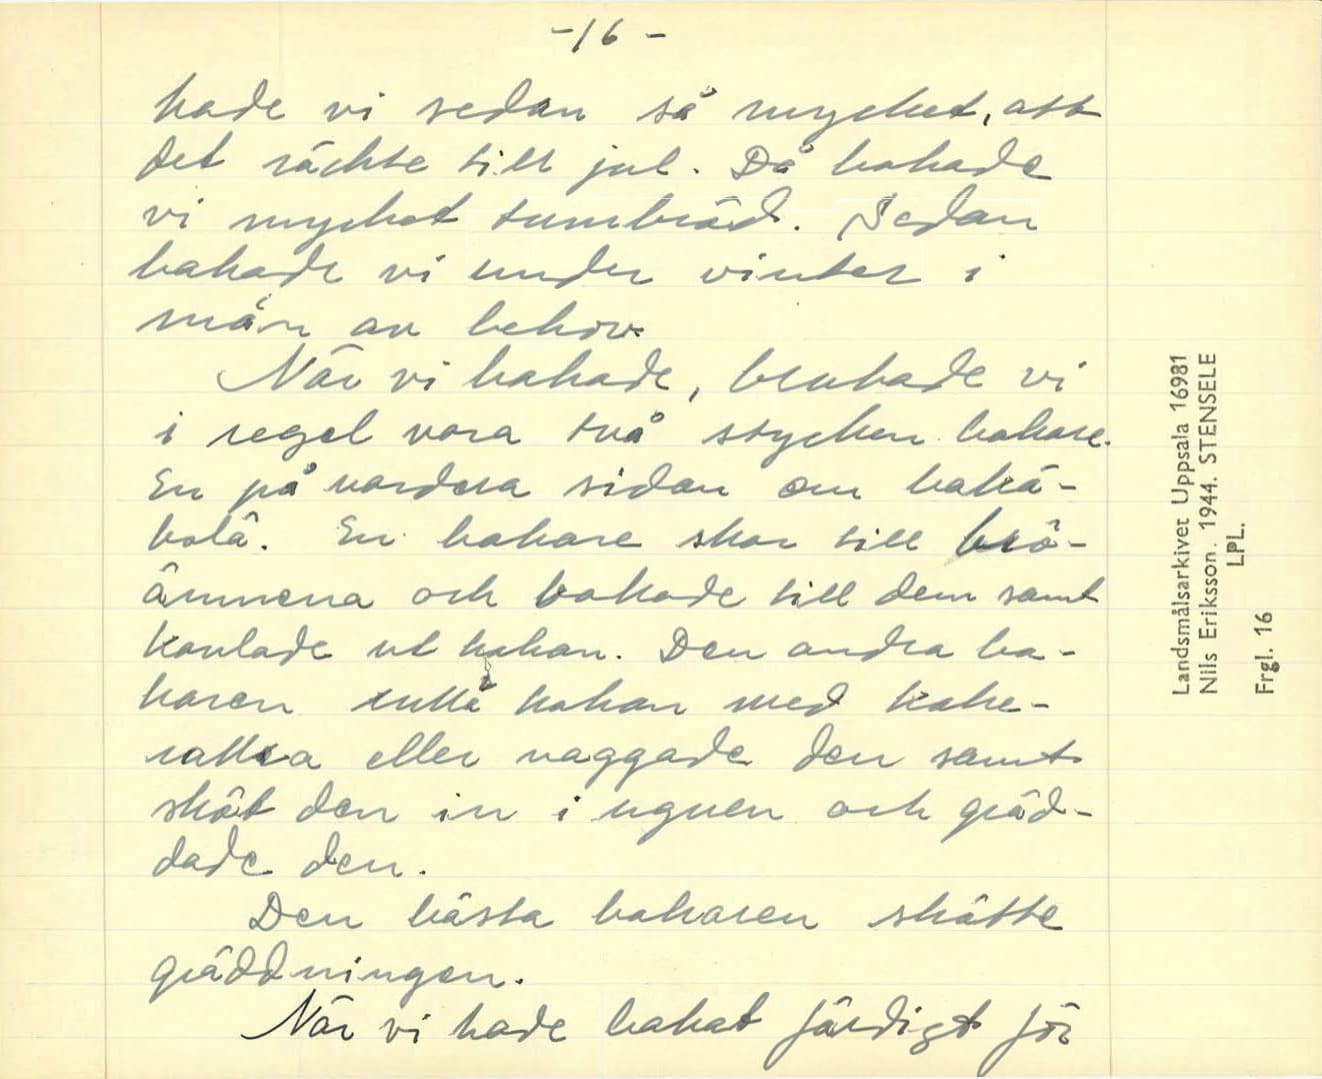 -16-
hade vi sedan så mycket, att
det räckte till jul. Då bakade
vi mycket tunnbröd. Sedan
bakade vi under vinter i
mån av behov.
När vi bakade, brukade vi
i regel vara två stycken bakare.
En på vardera sidan om bakä-
bolä. En bakare skar till brö-
ämnena och bakade till dem samt
kavlade ut kakan. Den andra ba-
karen kakan med kake-
eller vaggade den samt
sköt den in i ugnen och gräd-
dade den.
Den bästa bakaren skötte
gräddningen.
När vi hade bakat färdigt för
Landsmålsarkivet Uppsala 16981
Nils Eriksson. 1944. STENSELE
LPL.
Frgl. 16